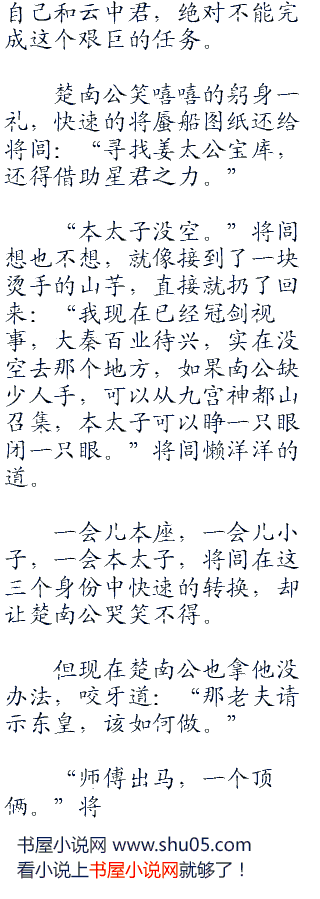 自己和云中君，绝对不能完
成这个艰巨的任务。
楚南公笑嘻嘻的躬身一
礼，快速的将蜃船图纸还给
将闾：“寻找姜太公宝库，
还得借助星君之力。”
“本太子没空。”将闾
想也不想，就像接到了一块
烫手的山芋，直接就扔了回
来：“我现在已经冠剑视
事，大秦百业待兴，实在没
空去那个地方，如果南公缺
少人手，可以从九宫神都山
召集，本太子可以睁一只眼
闭一只眼。”将闾懒洋洋的
道。
一会儿本座，一会儿小
子，一会本太子，将闾在这
三个身份中快速的转换，却
让楚南公哭笑不得。
但现在楚南公也拿他没
办法，咬牙道：“那老夫请
示东皇，该如何做。”
“师傅出马，一个顶
俩。”将
书屋小说网 www.shu05.com
看小说上书屋小说网就够了！